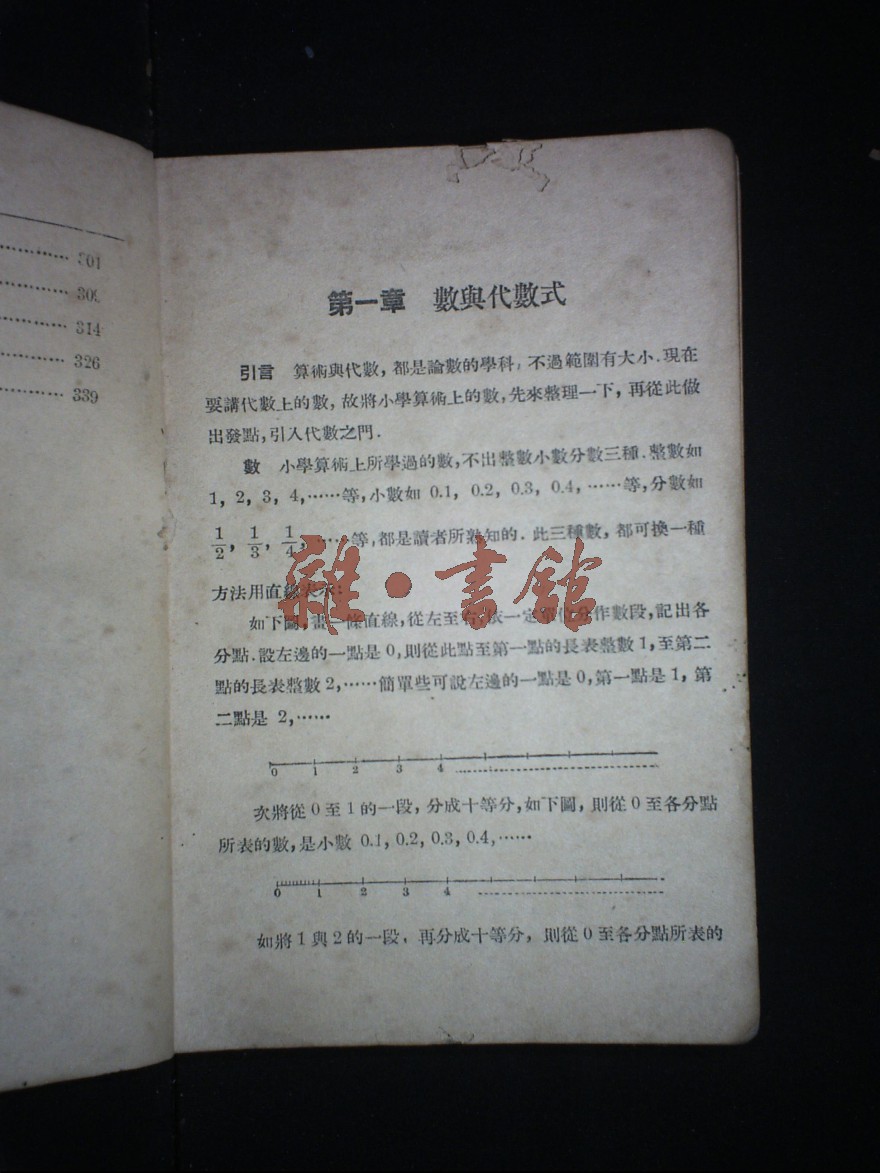 301
309
314
326
339
第一章 數與代數式
引言 算術與代數，都是論數的學科，不過範圍有大小．現在
要講代數上的數，故將小學算術上的數，先來整理一下，再從此做
出發點，引入代數之門．
數 小學算術上所學過的數，不出整數小數分數三種．整數如
1, 2, 3, 4, ……等，小數如 0.1, 0.2, 0.3, 0.4, ……等，分數如
1/2, 1/3, 1/4, ……等，都是讀者所熟知的．此三種數，都可換一種
方法用直線表示：
如下圖，畫一條直線，從左至右，依一定單位分作數段，記出各
分點．設左邊的一點是 0，則從此點至第一點的長表整數 1，至第二
點的長表整數 2，……簡單些可說左邊的一點是 0，第一點是 1，第
二點是 2，……
0 1 2 3 4
次將從 0 至 1 的一段，分成十等分，如下圖，則從 0 至各分點
所表的數，是小數 0.1, 0.2, 0.3, 0.4, ……
0 1 2 3 4
如將 1 與 2 的一段，再分成十等分，則從 0 至各分點所表的
雜·書館